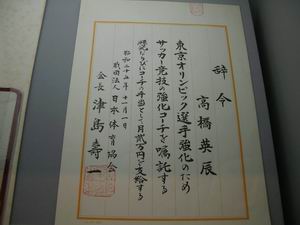 辞令
高橋英辰
東京オリンピック選手強化のため
サッカー競技の強化コーチを嘱託する
コーチの手当として月貳万円を支給する
昭和三十五年十二月一日
財団法人日本体育協会
会長 津島壽一